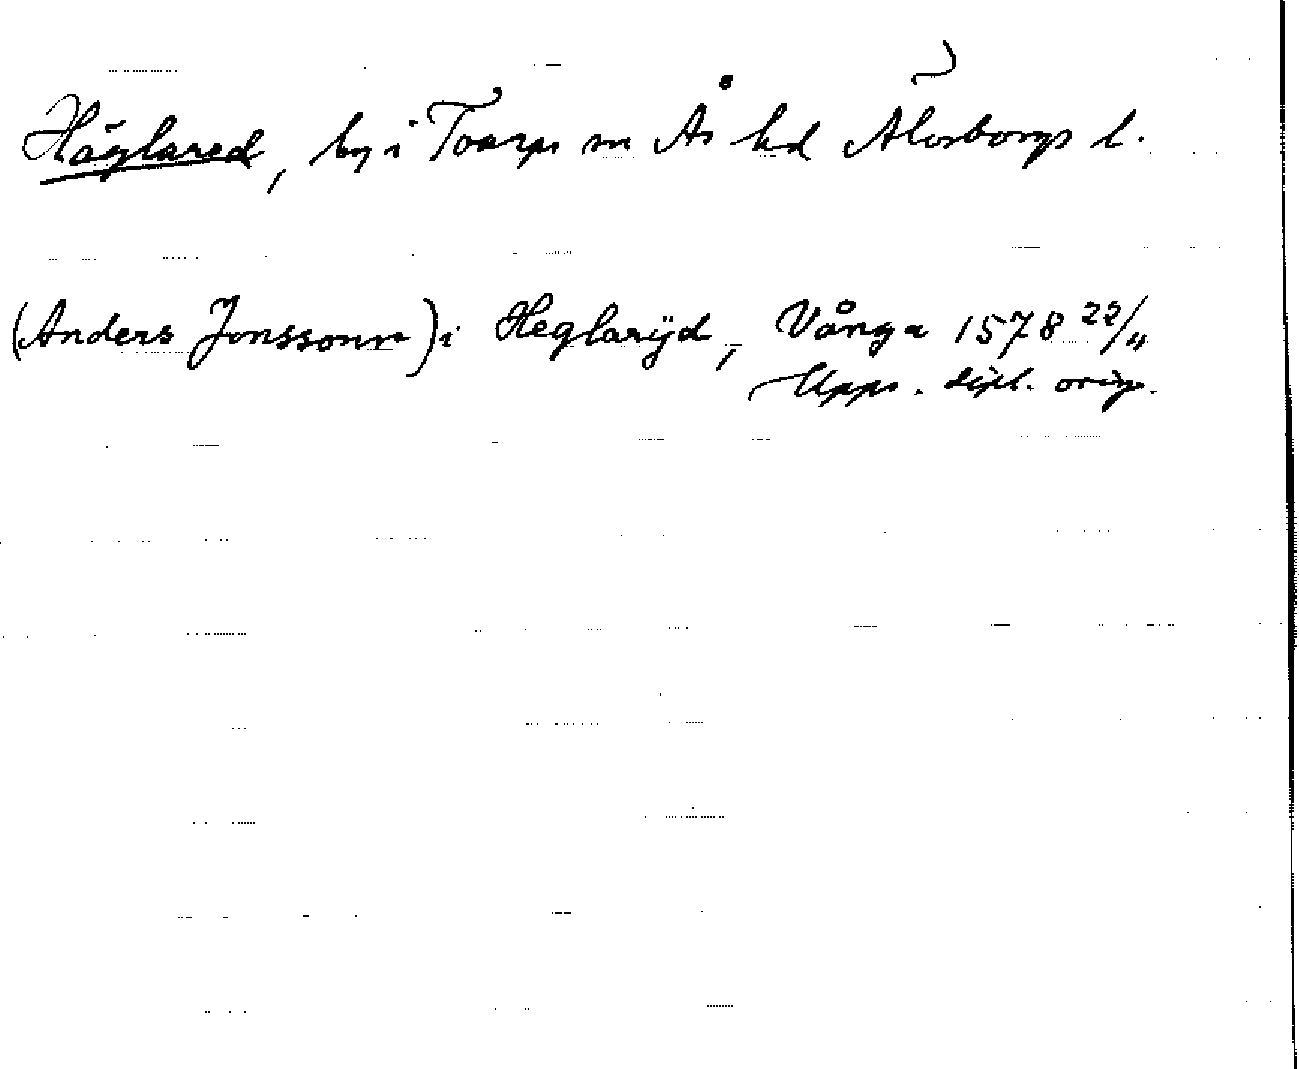 Häglared, by i Toarps sn Ås hd Älvsborgs l.
(Anders Jonssonn) i Heglarijd, Vånga 1578 22/11
Upps. dipl. orig.